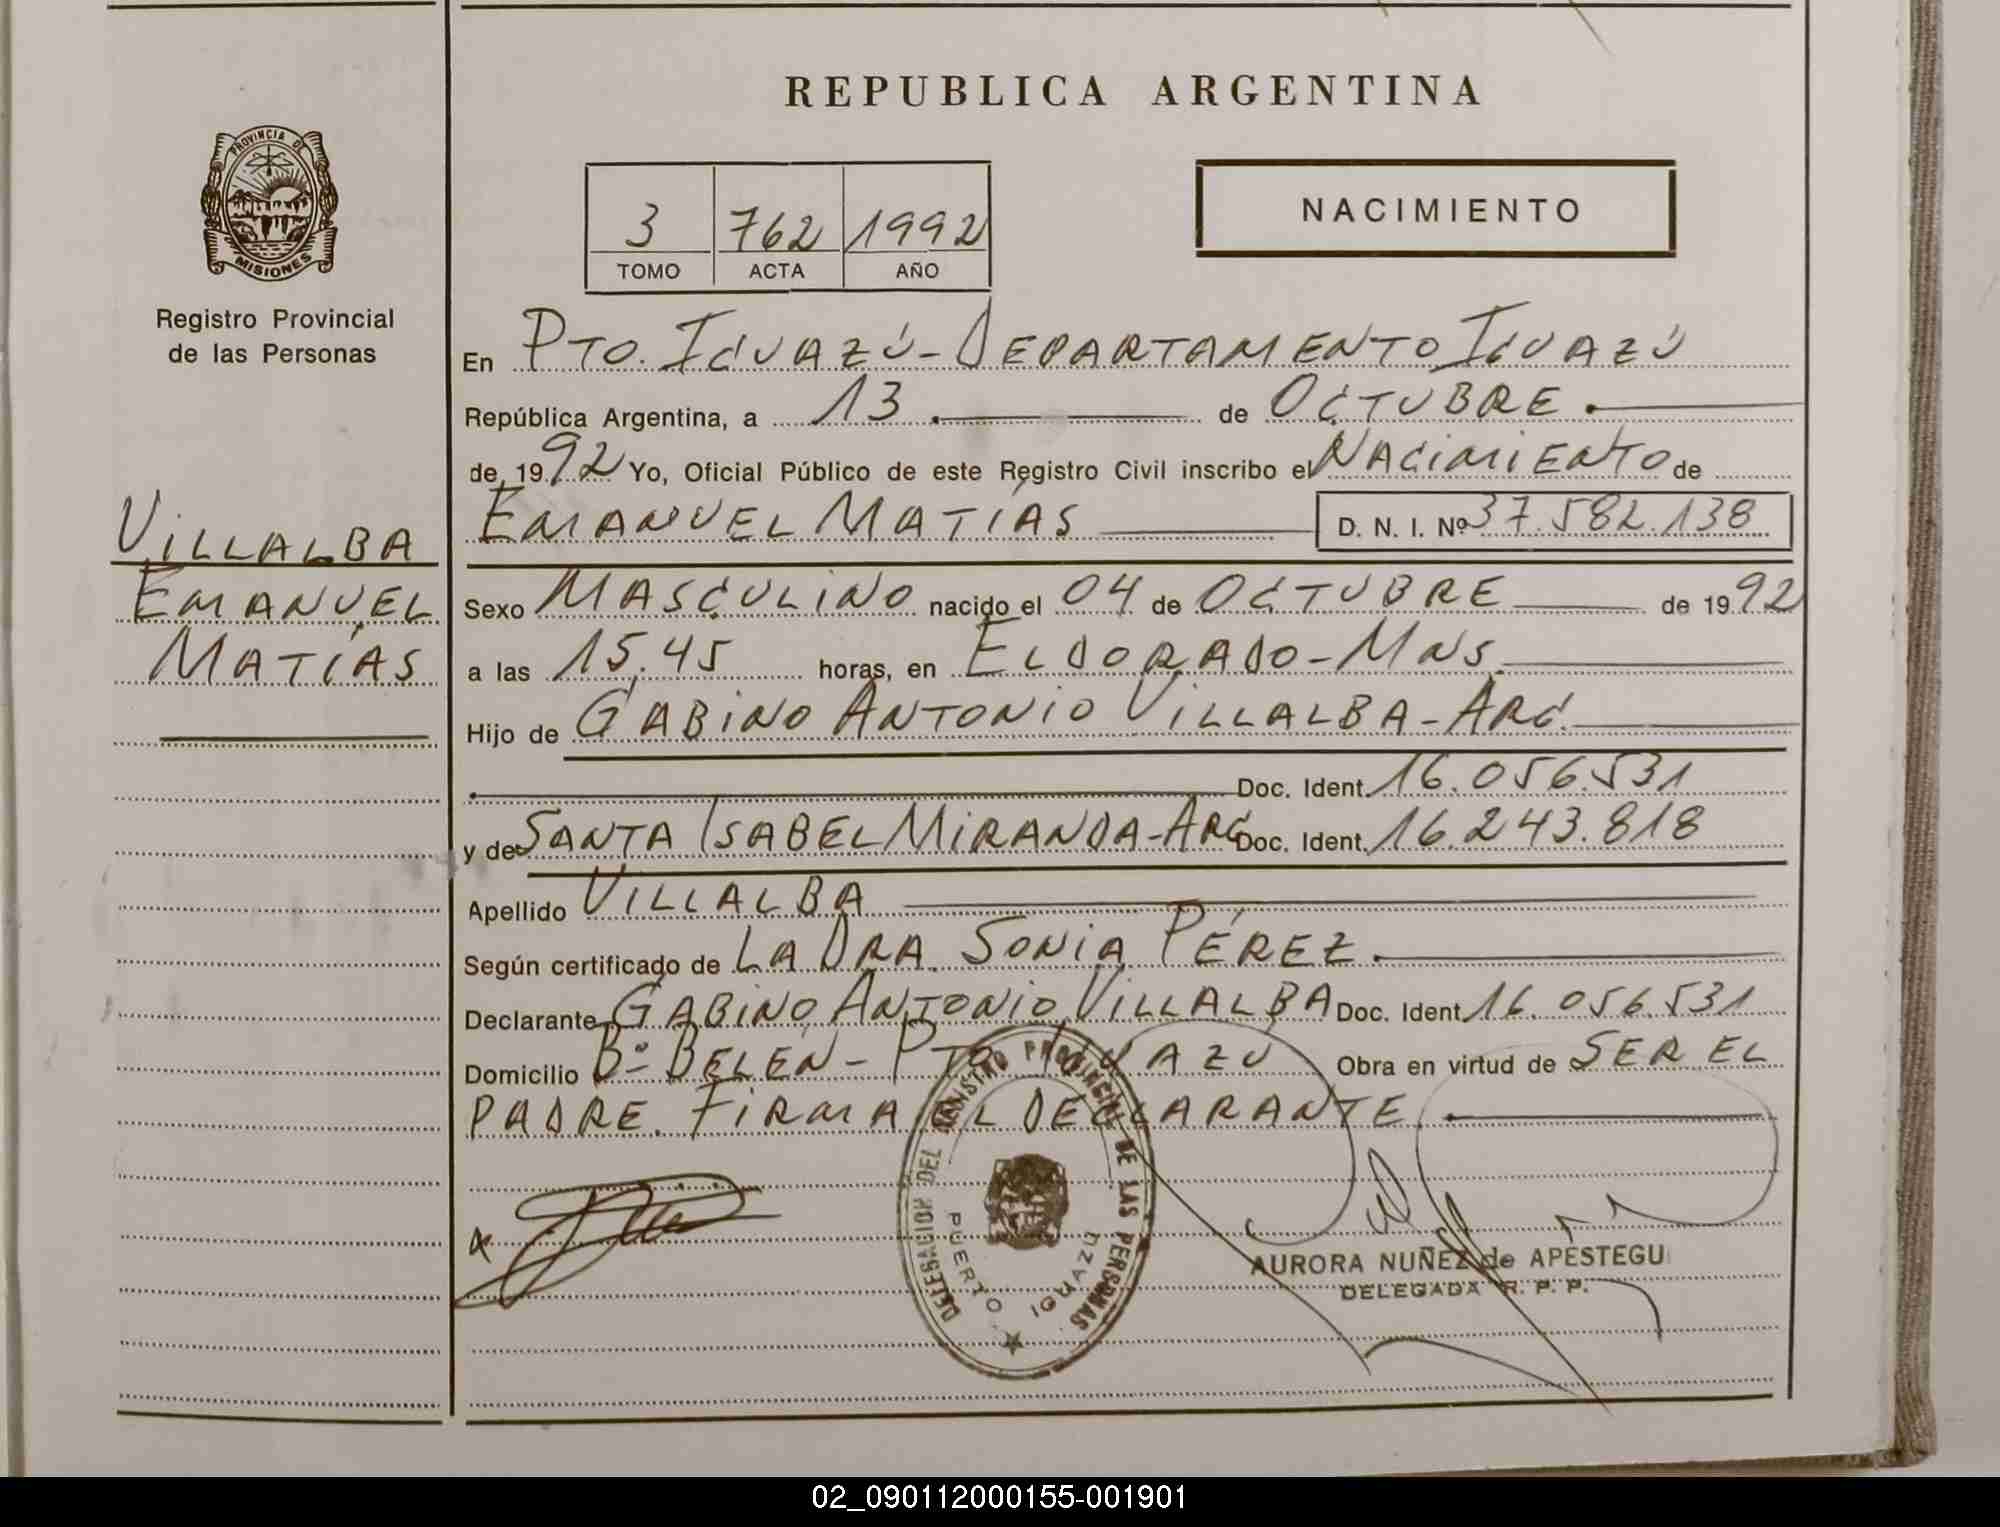 REPUBLICA ARGENTINA
PROVINCIA DE
MISIONES
Registro Provincial
de las Personas
3 762 1992
TOMO ACTA AÑO
NACIMIENTO
VILLALBA
EMANUEL
MATÍAS
En PTO. IGUAZÚ - DEPARTAMENTO IGUAZÚ
República Argentina, a 13. de OCTUBRE.
de 1992 Yo, Oficial Público de este Registro Civil inscribo el NACIMIENTO de
EMANUEL MATÍAS D. N. I. Nº 37.582.138
Sexo MASCULINO nacido el 04 de OCTUBRE de 1992
a las 15.45 horas, en ELDORADO - MNS.
Hijo de GABINO ANTONIO VILLALBA - ARG.
Doc. Ident. 16.056.531
y de SANTA ISABEL MIRANDA - ARG Doc. Ident. 16.243.818
Apellido VILLALBA
Según certificado de LA DRA. SONIA PÉREZ.
Declarante GABINO ANTONIO VILLALBA Doc. Ident. 16.056.531
Domicilio Bº BELÉN - PTO. IGUAZÚ Obra en virtud de SER EL
PADRE. FIRMA EL DECLARANTE.
DELEGACION DEL REGISTRO PROVINCIAL DE LAS PERSONAS
PUERTO IGUAZU
AURORA NUÑEZ de APESTEGUI
DELEGADA R. P. P.
02_090112000155-001901